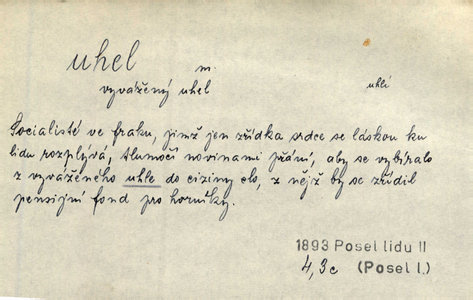 uhel m.
vyvážený uhel uhlí
Socialisté ve fraku, jimž jen zřídka srdce se láskou ku
lidu rozplývá, tlumočí novinami přání, aby se vybíralo
z vyváženého uhle do ciziny clo, z nějž by se zřídil
pensijní fond pro horníky.
1893 Posel lidu II
4,3c (Posel I.)